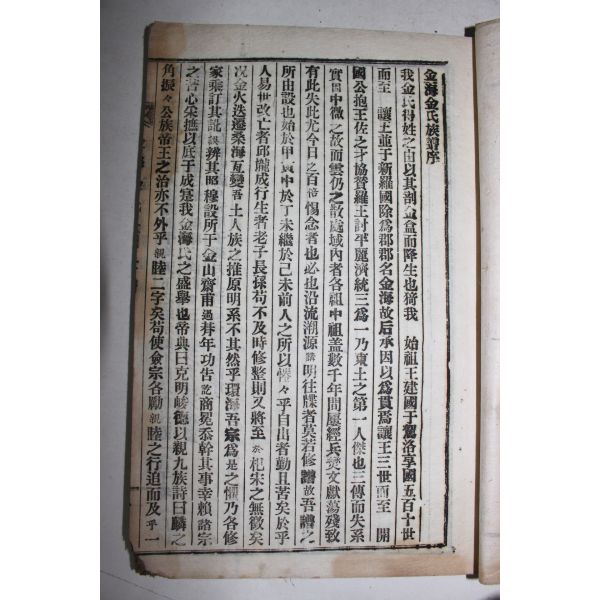 金海金氏族譜序
我金氏得姓之由以其剖金盒而降生也猗我 始祖王建國于駕洛享國五百十世
而至 讓王並于新羅國除爲郡郡名金海故后承因以爲貫焉讓王三世而至 開
國公抱王佐之才協贊羅王討平麗濟統三爲一乃東土之第一人傑也三傳而失系
實因中微之故而雲仍之散處域內者各祖中祖盖數千年間屢經兵燹文獻蕩殘致
有此失此尤今日之百倍惕念者也必也沿流溯源講明往牒者莫若修譜故吾譜之
所由設也始於甲寅中於丁未繼於己未前人之所以惓々乎自出者勤且苦矣於乎
人易世改亡者邱壠成行生者老子長孫苟不及時修整則又將至於杞宋之無徵矣
况金火迭遷桑海亙變吾土人族之推原明系不其然乎環海吾宗爲是之懼乃各修
家乘訂其訛誤辨其昭穆設所于金山齋甫過朞年功告訖商冕忝幹其事幸賴諸宗
之苦心采摭以底于成寔我金海氏之盛擧也帝典曰克明峻德以親九族詩曰麟之
角振々公族帝王之治亦不外乎親睦二字矣苟使僉宗各勵親睦之行追而及乎一